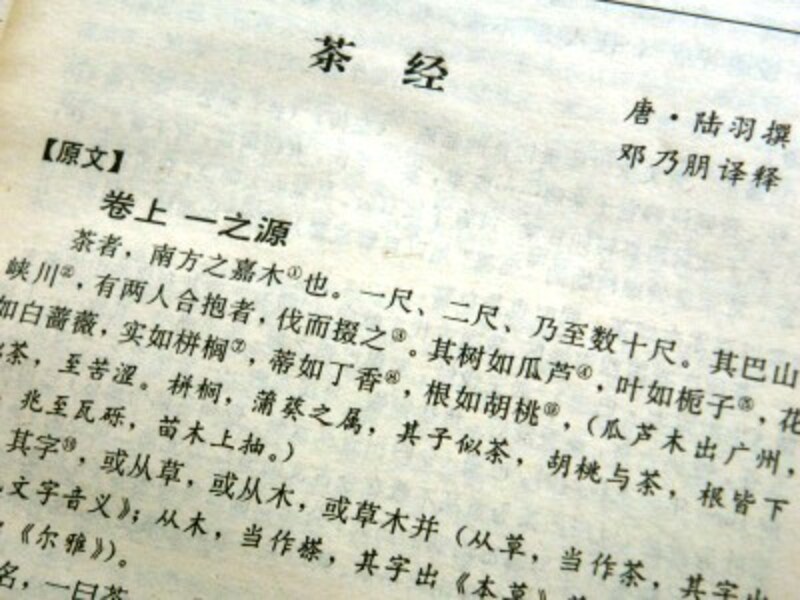 茶 经
唐·陆羽撰
邓乃朋译释
【原文】
卷上 一之源
茶者，南方之嘉木①也。一尺、二尺、乃至数十尺。其巴山
峡川②，有两人合抱者，伐而掇之③。其树如瓜芦④，叶如栀子⑤，花
如白蔷薇，实如栟榈⑦，蒂如丁香⑧，根如胡桃，（瓜芦木出广州，
茶，至苦涩。栟榈，蒲葵之属，其子似茶，胡桃与茶，根皆下
兆至瓦砾，苗木上抽。）
其字⑩，或从草，或从木，或草木并（从草，当作茶，其字出
文字音义》；从木，当作㮈，其字出《本草》
《尔雅》）。
名，一曰茶